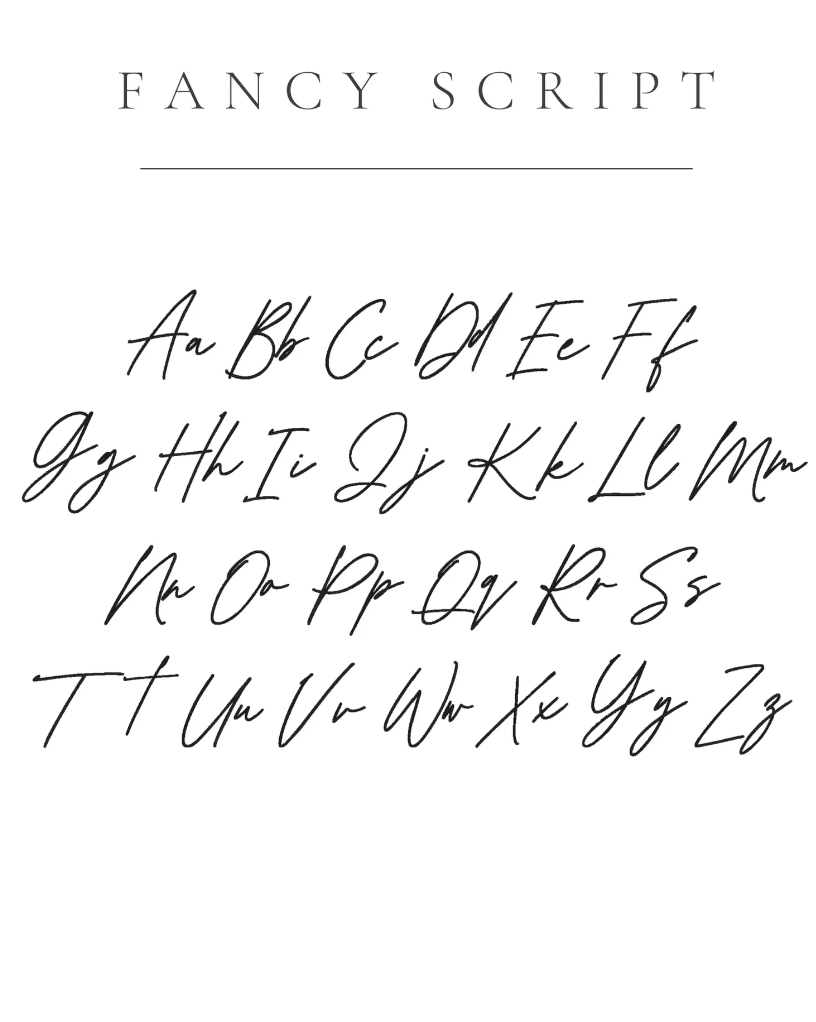 FANCY SCRIPT
Aa Bb Cc Dd Ee Ff
Gg Hh Ii Jj Kk Ll Mm
Nn Oo Pp Qq Rr Ss
Tt Uu Vv Ww Xx Yy Zz